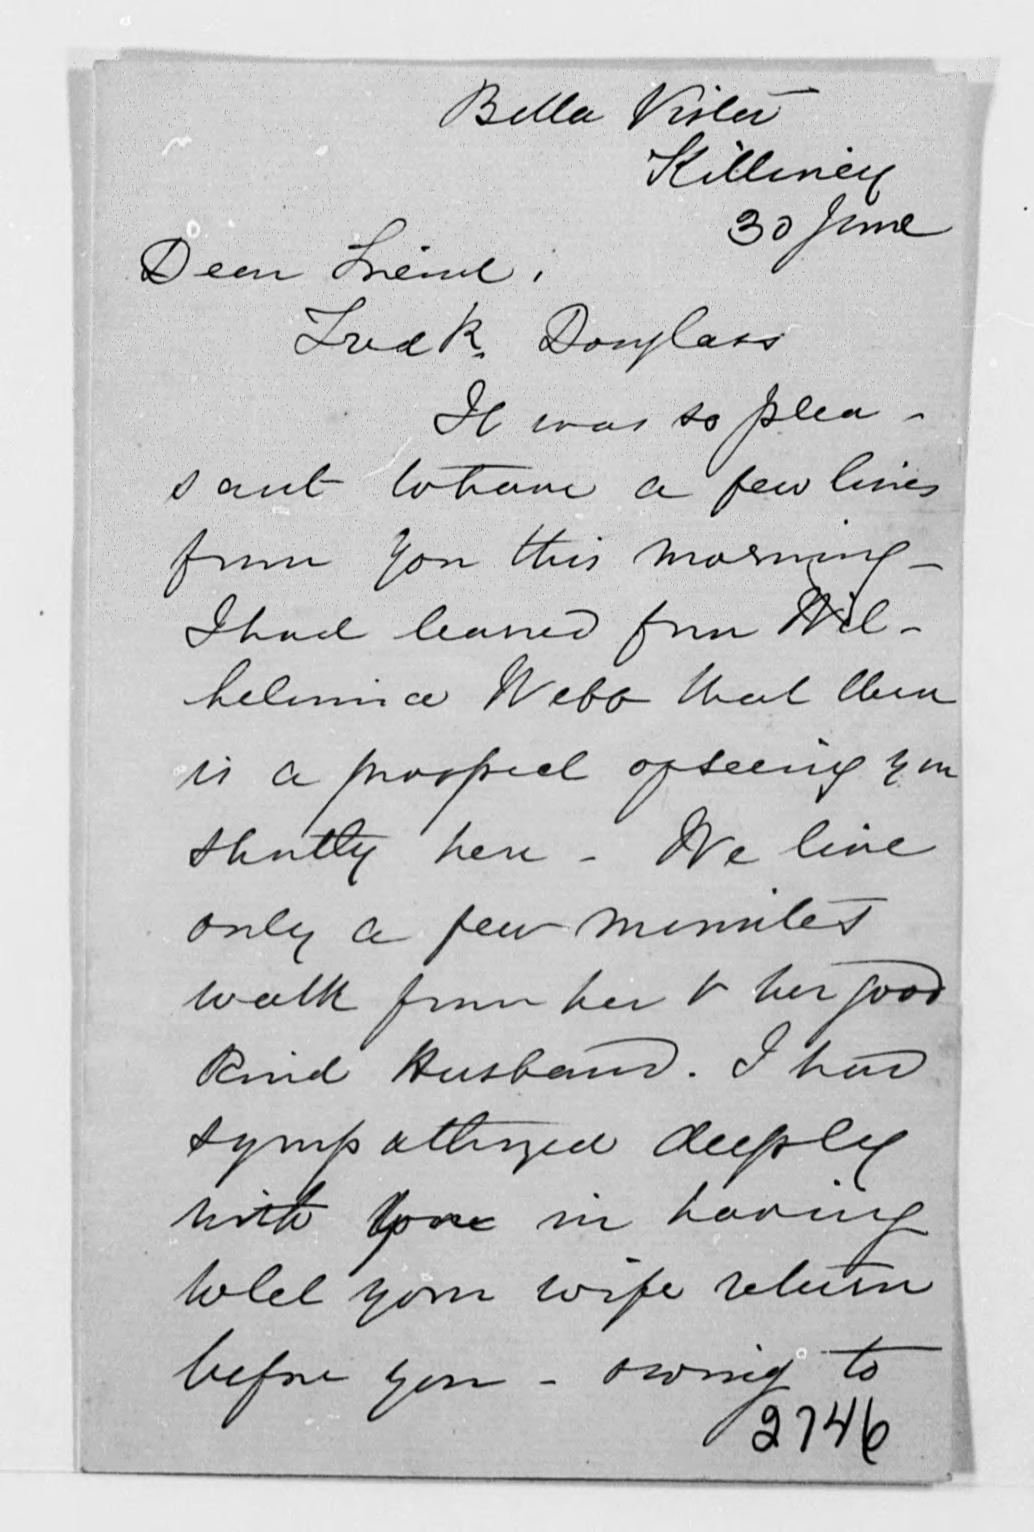 Bella Vista
Killiney
30 June
Dear Friend,
Fredk. Douglass
It was so plea-
sant to have a few lines
from you this morning -
I had learned from Wil-
helmina Webb that there
is a prospect of seeing you
shortly here - We live
only a few minutes
walk from her & her good
kind Husband. I had
sympathized deeply
with you in having
to let your wife return
before you - owing to
2746